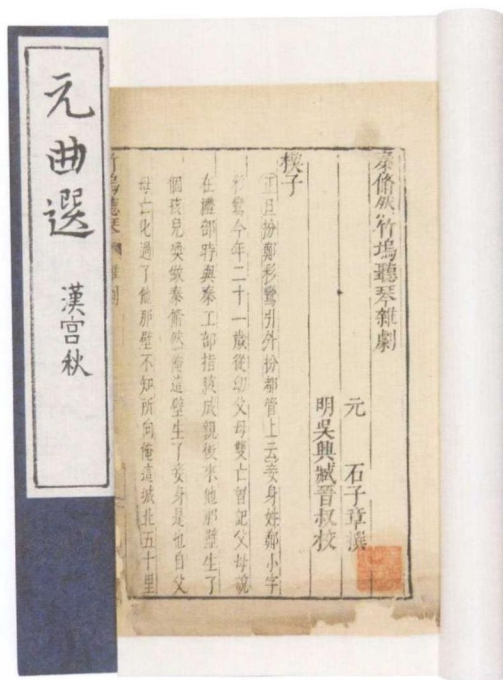 元曲選
漢宮秋
秦脩然竹塢聽琴雜劇
元 石子章撰
明吳興臧晉叔校
楔子
正旦扮鄭彩鸞引外扮都管上云妾身姓鄭小字
彩鸞今年二十一歲從幼父母雙亡曾記父母說
在禮部時與秦工部指腹成親後來他那壁生了
個孩兒喚做秦脩然俺這壁生了妾身是也自父
母亡化過了他那壁不知所向俺這城北五十里